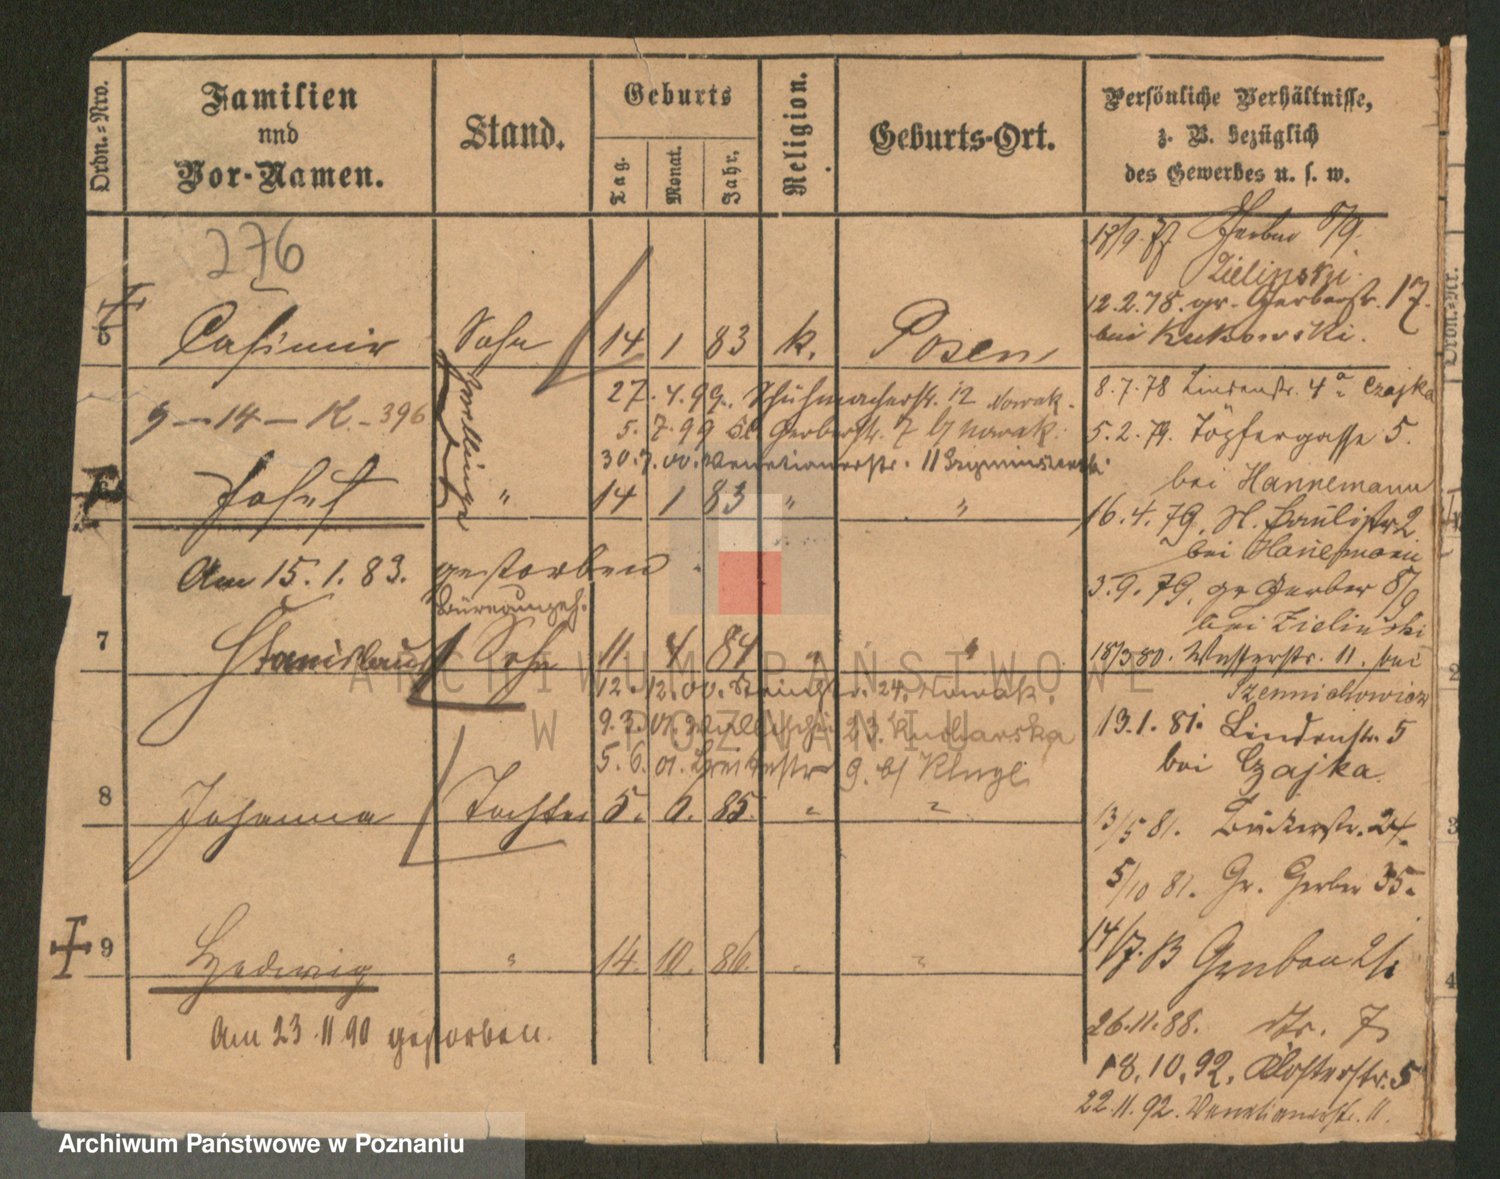 Ordn.=Nro.
Familien
und
Vor-Namen.
Stand.
Geburts
Tag.
Monat.
Jahr.
Religion.
Geburts-Ort.
Persönliche Verhältnisse,
z. B. bezüglich
des Gewerbes u. s. w.
276
5 Casimir Sohn 14 1 83 k. Posen
9 - 14 - K. - 396
Zwillinge
27. 4. 99. Schuhmacherstr. 12 Nowak.
5. 7. 99 Kl. Gerberstr. 7 b/ Nowak.
30. 7. 00. Venetianerstr. 11
Josef " 14 1 83 " "
Am 15. 1. 83. gestorben
7 Stanislaus Sohn 11 4 84 " "
12. 12. 00. 24. Nowak.
9. 3. 01. 23. Kucharska
5. 6. 01. Breitestr 9. b/ Kluge
8 Johanna Tochter 5. 6. 85. " "
9 Hedwig " 14. 10. 86. " "
Am 23. 11 90 gestorben.
18/9. 77 Gerber 8/9.
Zielinski.
12. 2. 78. gr. Gerberstr. 17.
bei Kukowski.
8. 7. 78 Lindenstr. 4a Czajka
5. 2. 79. Töpfergasse 5.
bei Hannemann
16. 4. 79. St. Paulistr 2
bei Hannemann
3. 9. 79. gr Gerber 8/9
bei Zielinski
18/3 80. 11. bei
13. 1. 81. Lindenstr. 5
bei Czajka.
13/5 81. Bäckerstr. 24.
5/10 81. Gr. Gerber 35.
14/7. 83 Graben 2/
26. 11. 88. 7
18. 10. 92. Klosterstr. 5
22. 11. 92. Venetianerstr. 11.
Ordn.=Nr.
1
2
3
4
ARCHIWUM PAŃSTWOWE
W POZNANIU
Archiwum Państwowe w Poznaniu